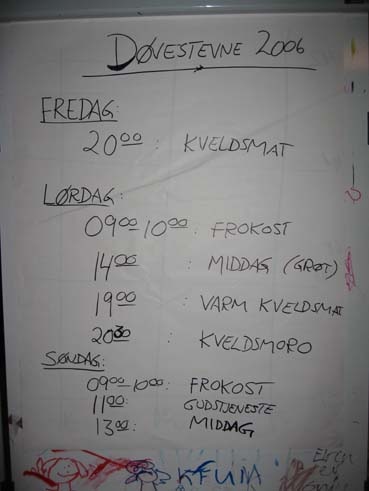 DØVESTEVNE 2006
FREDAG:
20 00 : KVELDSMAT
LØRDAG:
09 00 - 10 00 : FROKOST
14 00 : MIDDAG (GRØT)
19 00 : VARM KVELDSMAT
20 30 : KVELDSMORO
SØNDAG:
09 00 - 10 00 : FROKOST
11 00 : GUDSTJENESTE
13 00 : MIDDAG
KFUM